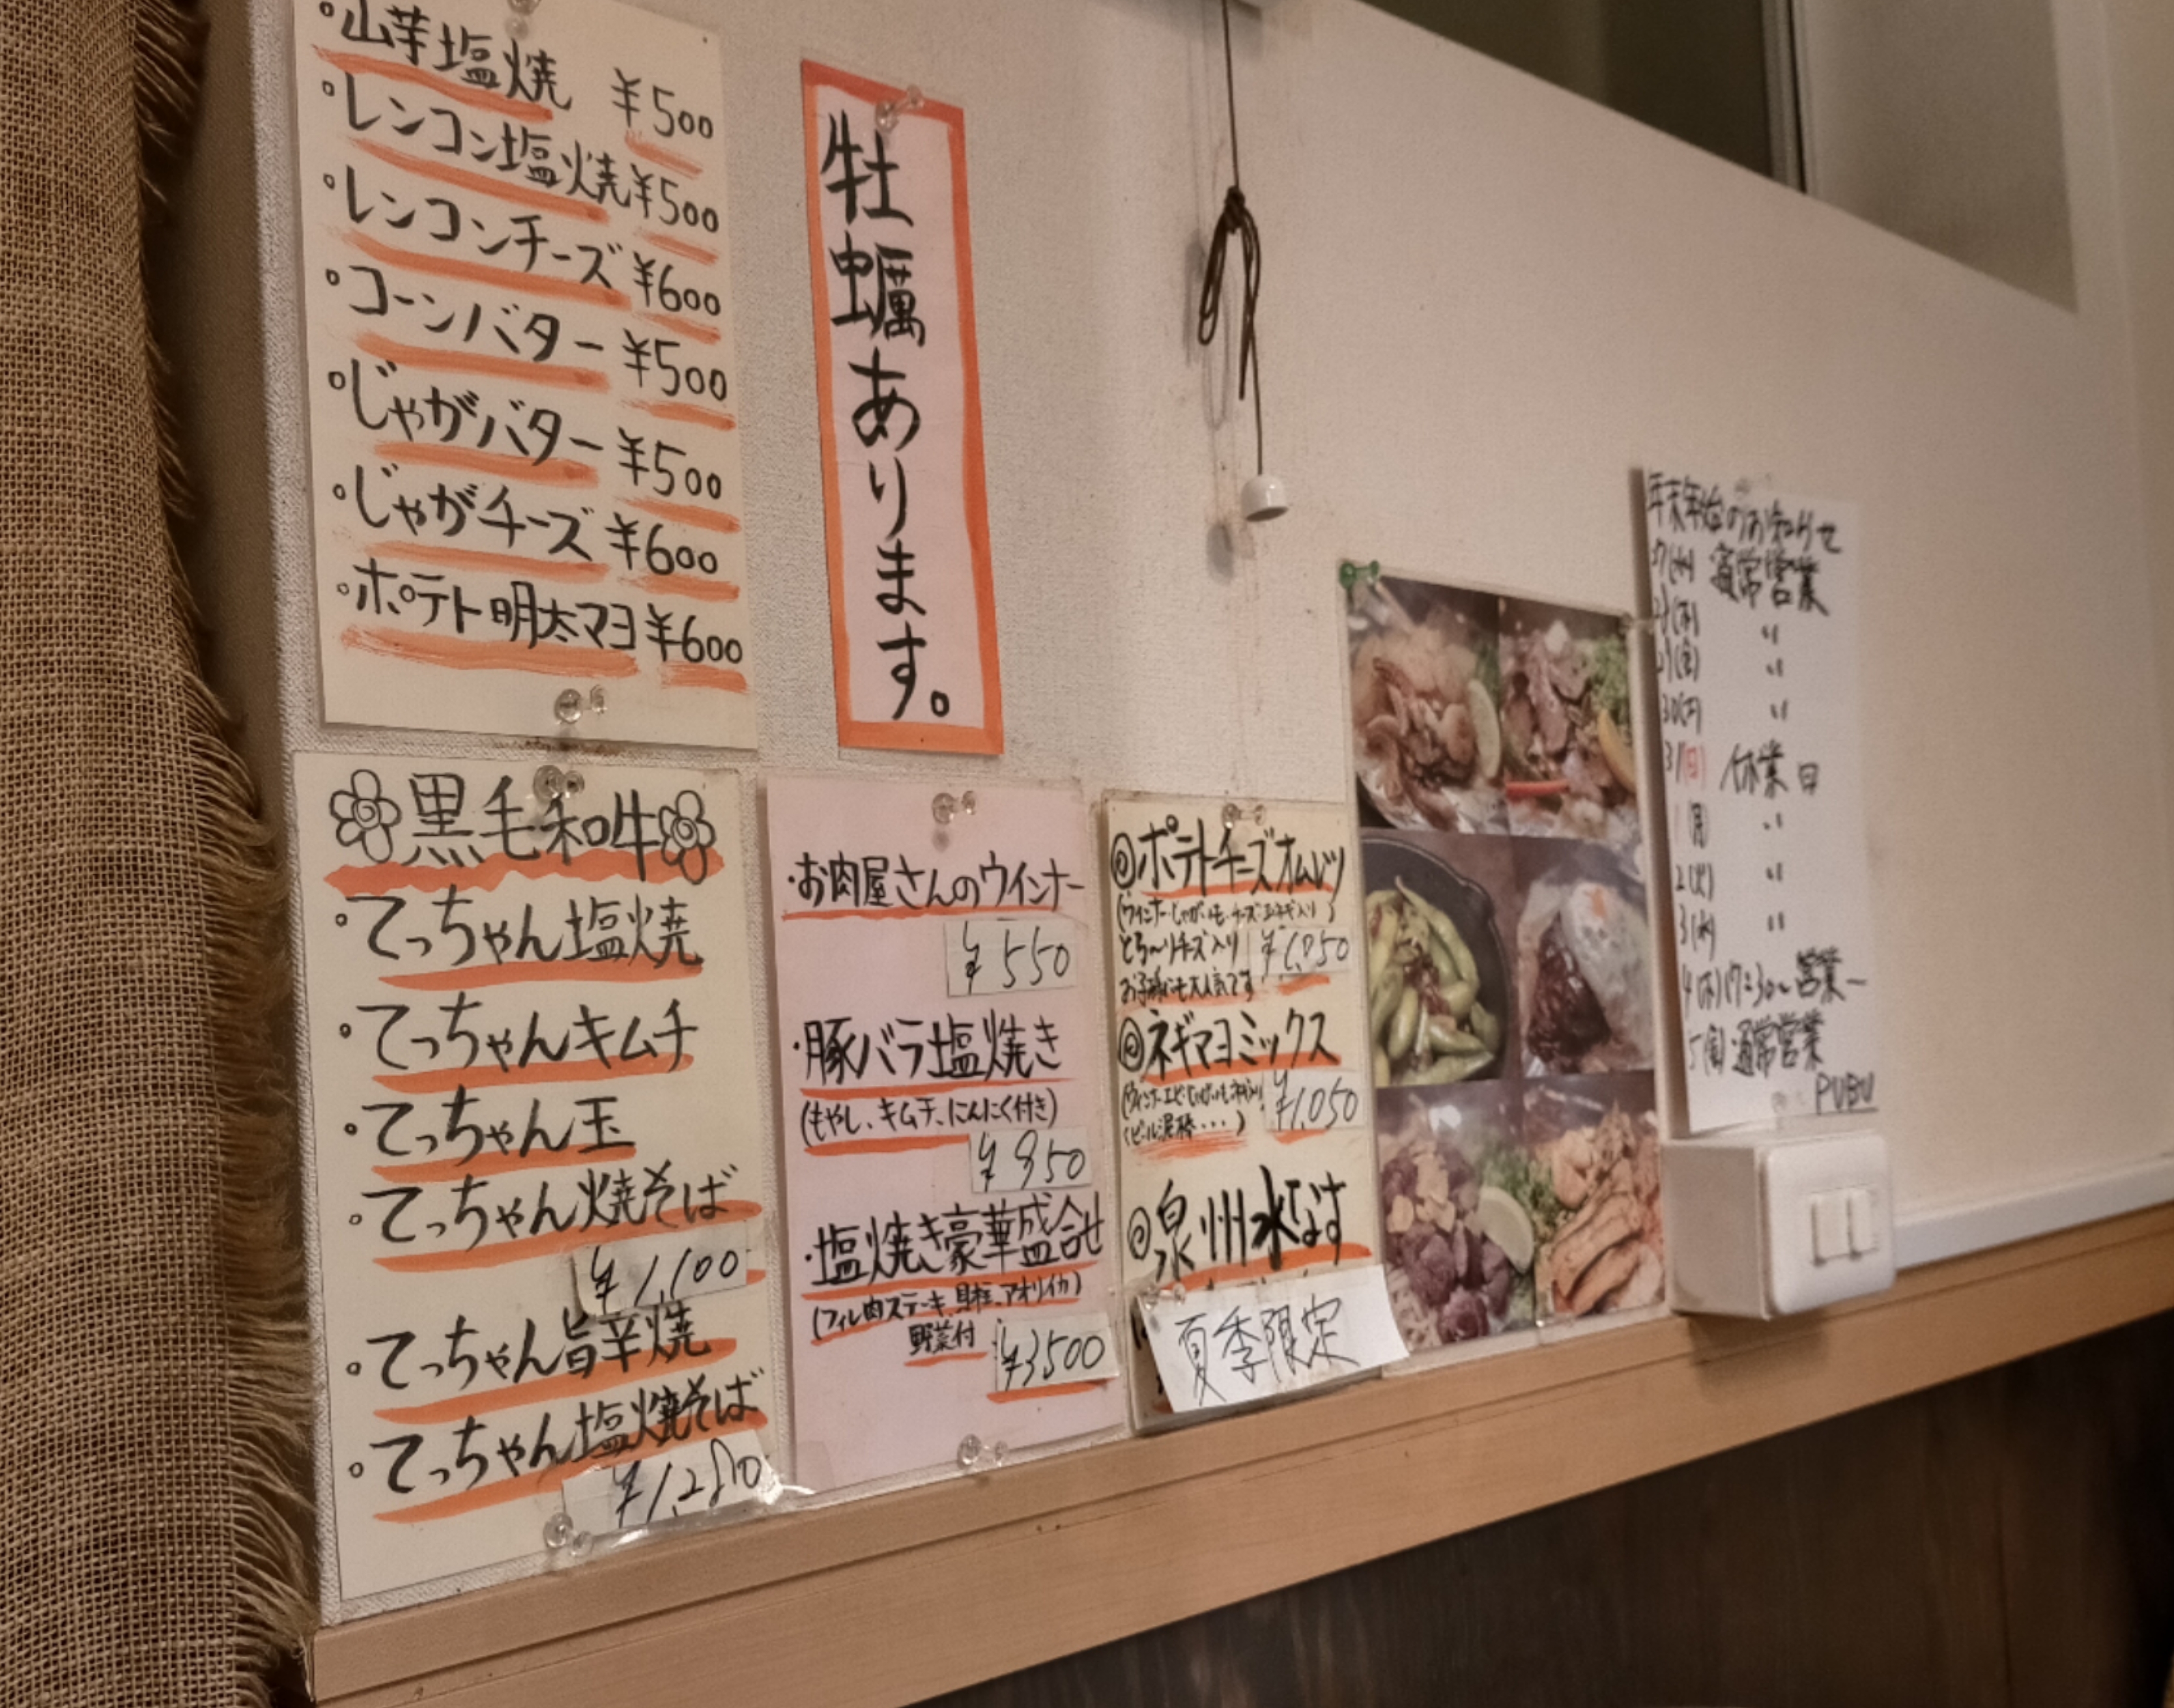 ・山芋塩焼 ¥500
・レンコン塩焼 ¥500
・レンコンチーズ ¥600
・コーンバター ¥500
・じゃがバター ¥500
・じゃがチーズ ¥600
・ポテト明太マヨ ¥600
牡蠣あります。
黒毛和牛
・てっちゃん塩焼
・てっちゃんキムチ
・てっちゃん玉
・てっちゃん焼そば
¥1,100
・てっちゃん旨辛焼
・てっちゃん塩焼そば
・お肉屋さんのウインナー
¥550
・豚バラ塩焼き
(もやし、キムチ、にんにく付き)
¥950
・塩焼き豪華盛合せ
(フィレ肉ステーキ、貝柱、アオリイカ)
野菜付
¥3500
◎ポテトチーズオムレツ
(ウインナー・じゃがいも・チーズ・玉ネギ入り)
とろ〜りチーズ入り ¥1,050
お子様にも大人気です
◎ネギマヨミックス
¥1,050
◎泉州水なす
夏季限定
年末年始のお知らせ
(水) 通常営業
(木) 〃
(金) 〃
30(土) 〃
31(日) 休業日
1(月) 〃
2(火) 〃
3(水) 〃
4(木) 17:30〜営業
5(金) 通常営業
PUBU